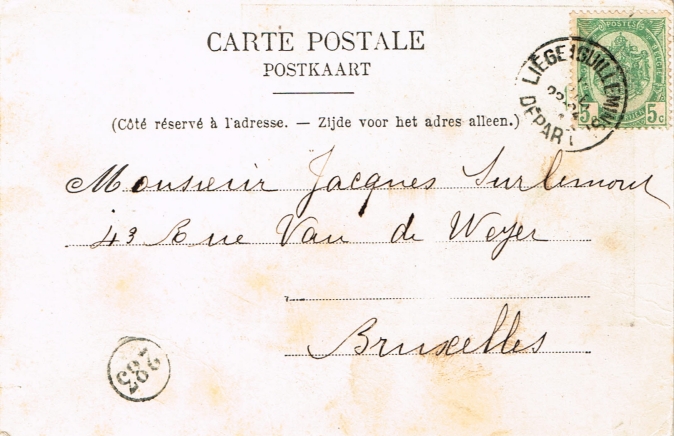 CARTE POSTALE
POSTKAART
(Côté réservé à l'adresse. — Zijde voor het adres alleen.)
LIÈGE (GUILLEMINS)
DÉPART
POSTES
5 5c
Monsieur Jacques Surlemont
43 Rue Van de Weyer
Bruxelles
283